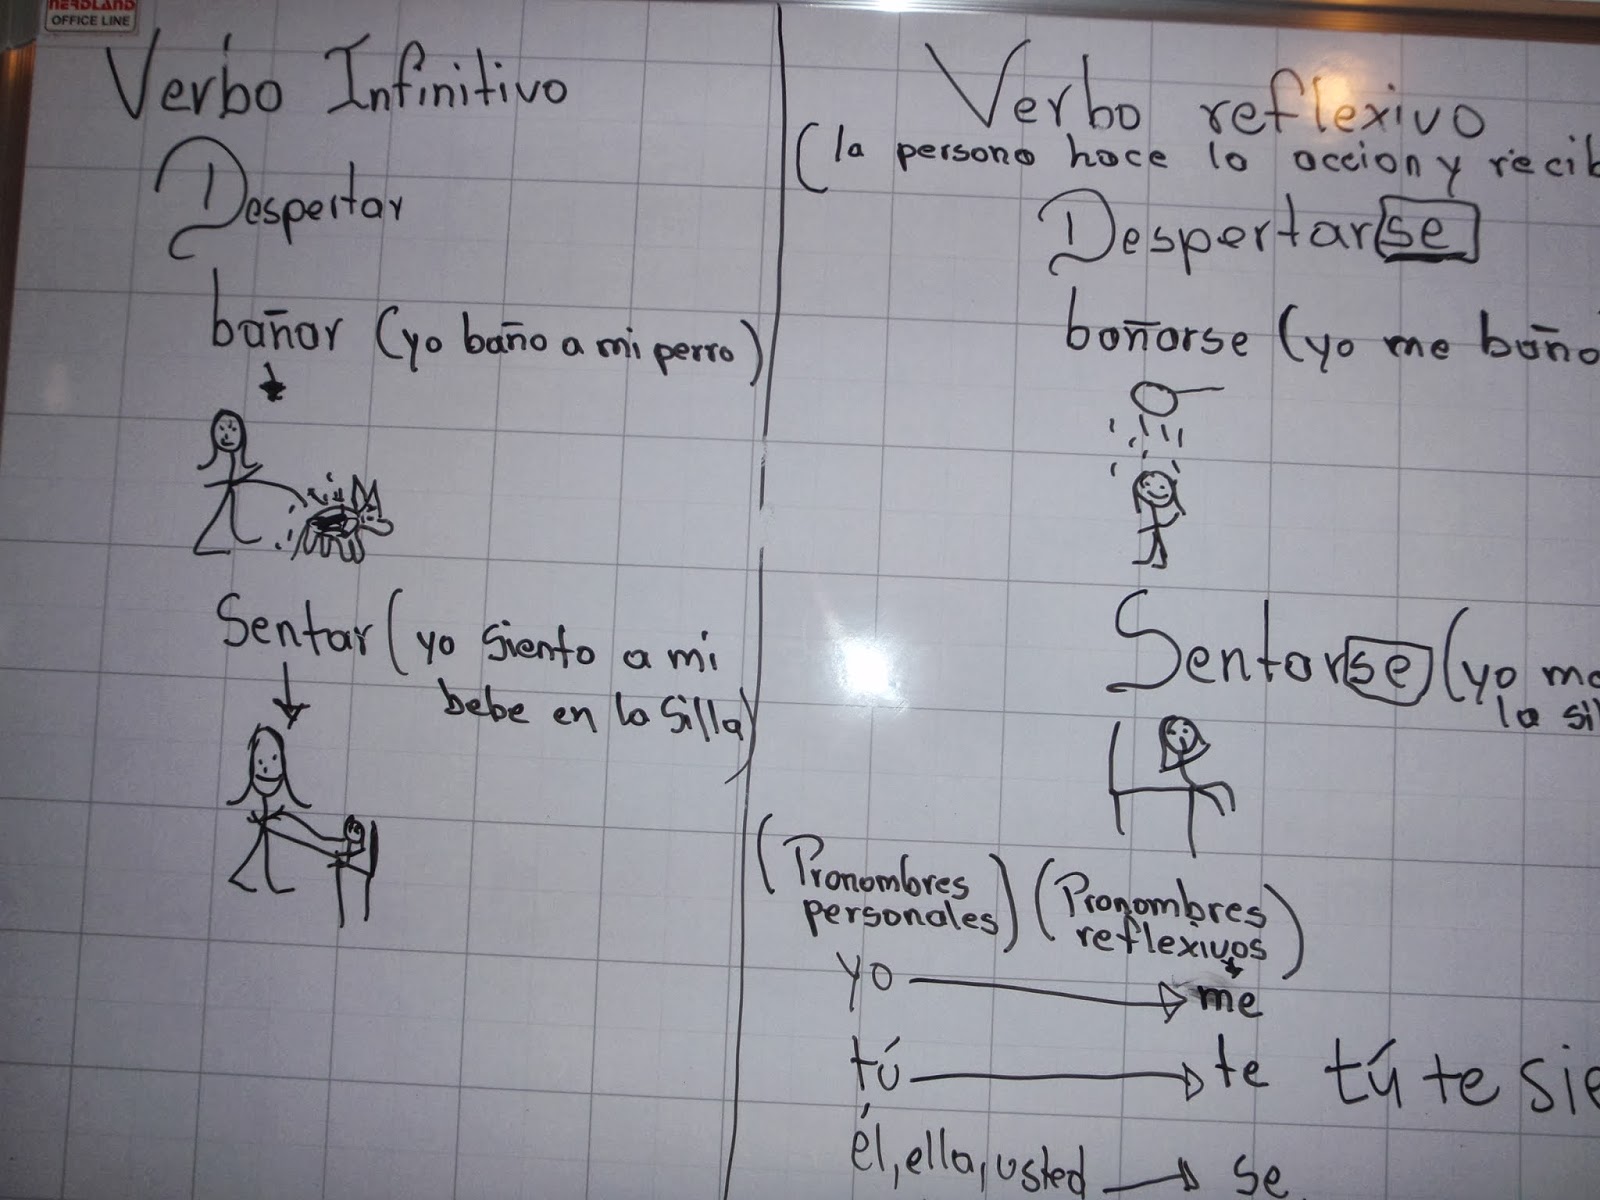 NERDLAND
OFFICE LINE
Verbo Infinitivo
Despertar
bañar (yo baño a mi perro)
Sentar (yo siento a mi
bebe en la silla)
Verbo reflexivo
(la persona hace la accion y recib
Despertarse
bañarse (yo me baño
Sentarse (yo me
la sil
(Pronombres
personales)
(Pronombres
reflexivos)
yo me
tú te tú te sie
él, ella, usted se